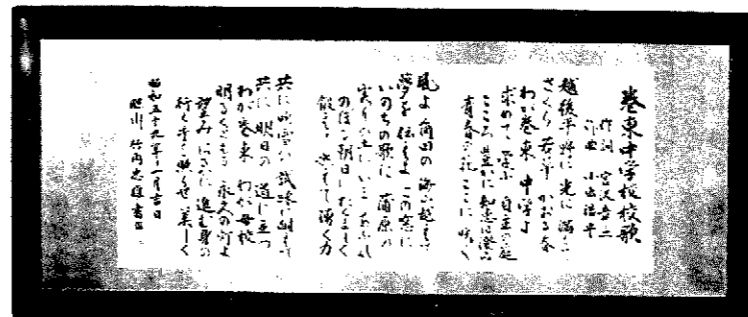 巻東中学校校歌
作詞 宮沢章二
作曲 小出浩平
越後平野に 光に満ちて
さくら 若草 かおる春
わが巻東 中学よ
求めて学ぶ 自主の庭
こころ豊かに 知恵は澄み
青春の花 ここに咲く
風よ 角田の 海に越えて
夢を伝えよ この窓に
いのちの歌に 蒲原の
実りの
のぼる朝日に たくましく
鍛えよ 湧く力
共に 吹雪の 試練に耐えて
共に 明日の 道に立つ
わが巻東 わが母校
明るくともる 永久の灯よ
望みにさかえ 進む身の
行く手 照らせ 美しく
昭和五十九年十一月吉日
竹内忠雄書